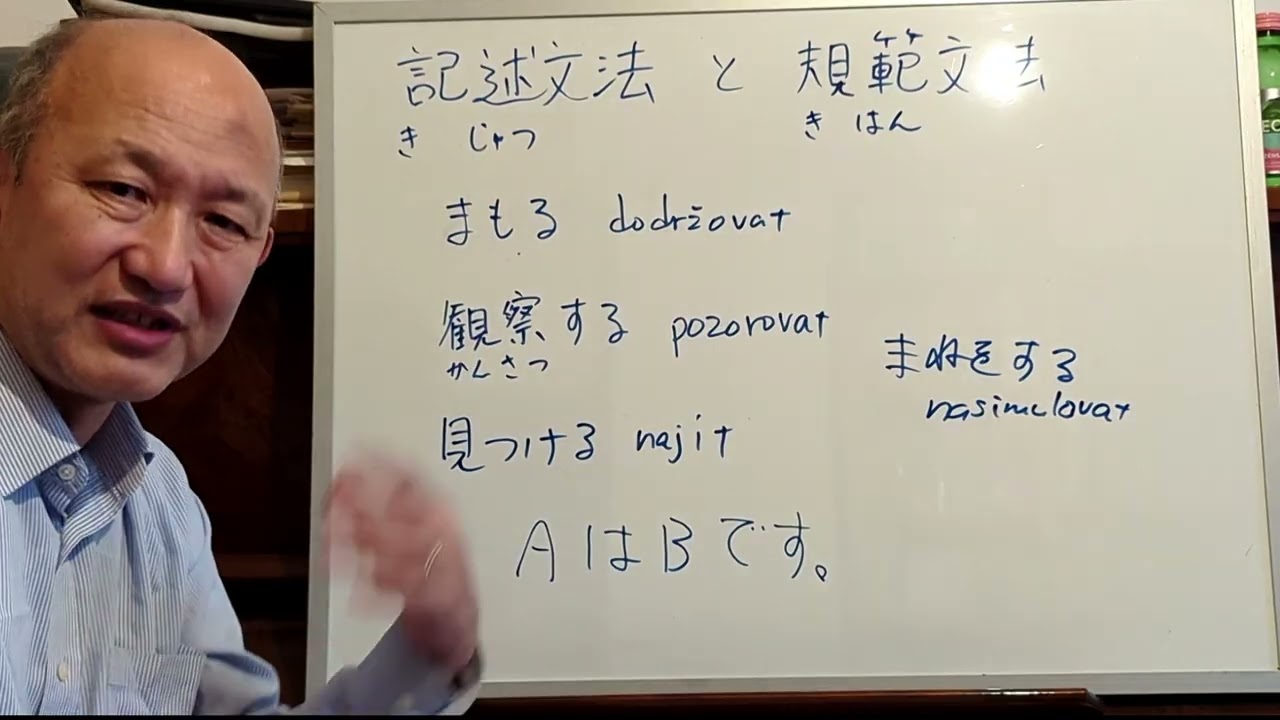 記述文法 と 規範文法
き じゅつ きはん
まもる dodržovat
観察する pozorovat
かんさつ
まねをする
nasimulovat
見つける najit
AはBです。